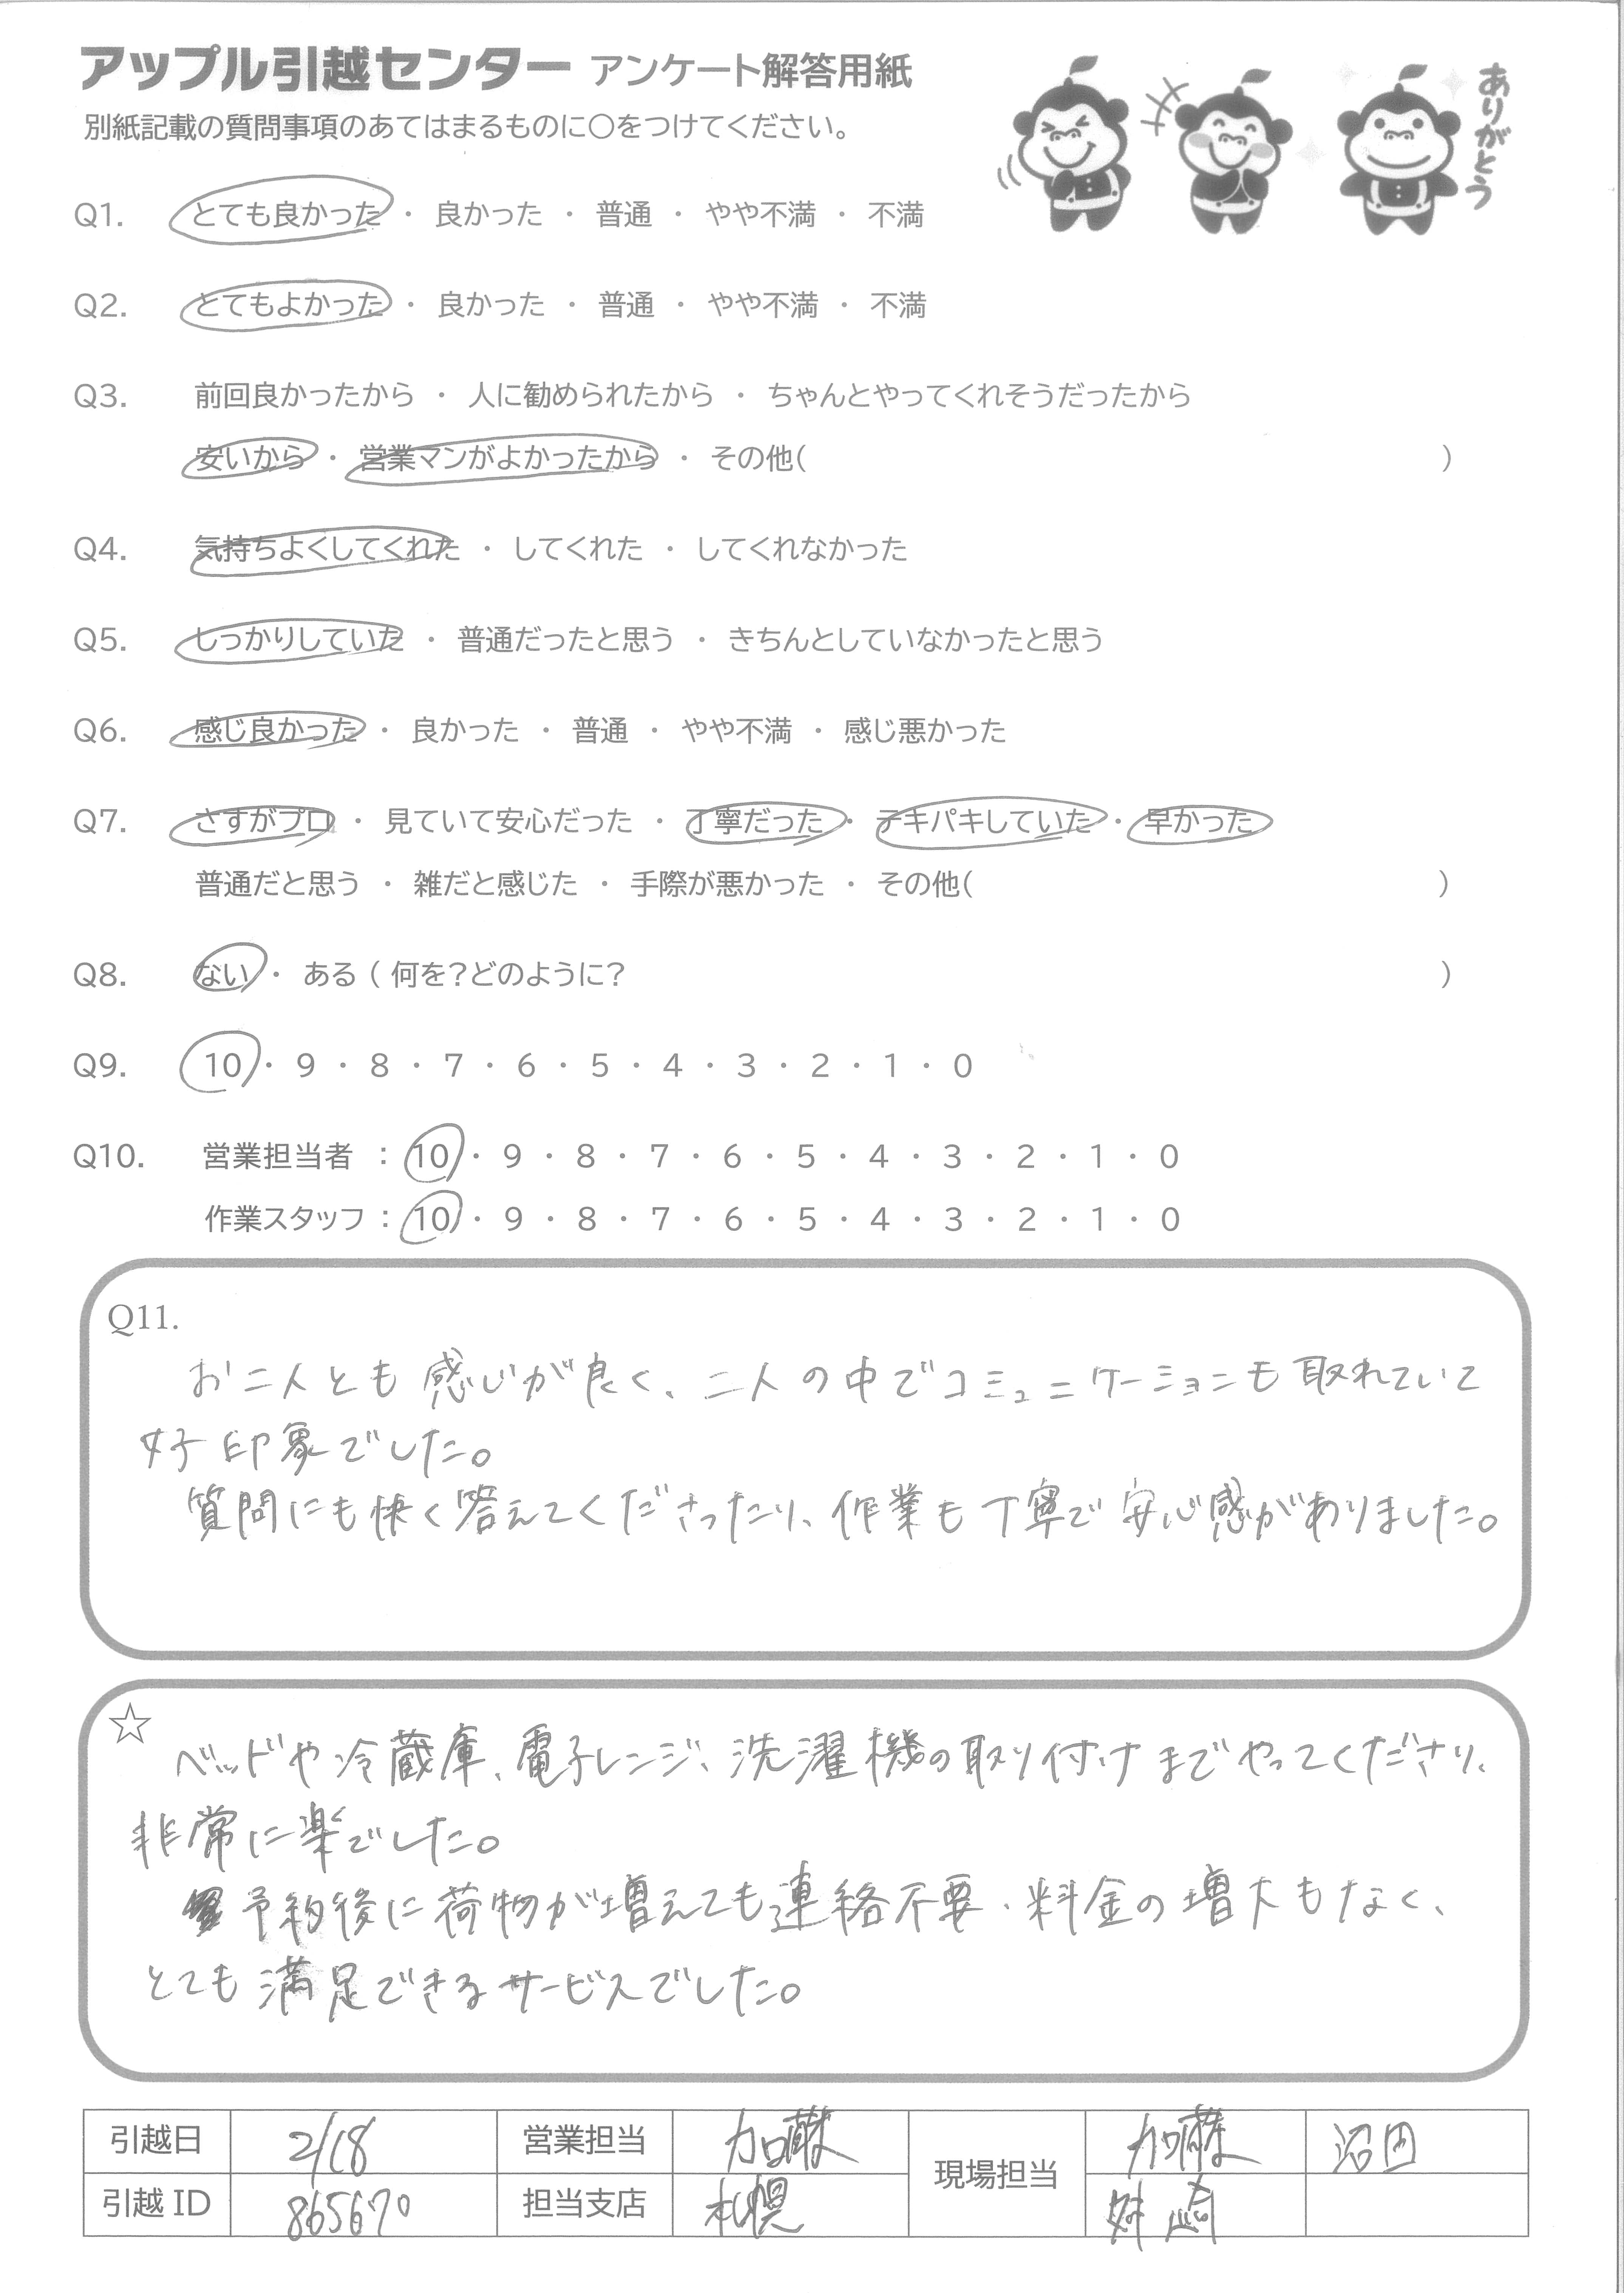 アップル引越センター アンケート解答用紙
別紙記載の質問事項のあてはまるものに○をつけてください。
ありがとう
Q1. とても良かった ・ 良かった ・ 普通 ・ やや不満 ・ 不満
Q2. とてもよかった ・ 良かった ・ 普通 ・ やや不満 ・ 不満
Q3. 前回良かったから ・ 人に勧められたから ・ ちゃんとやってくれそうだったから
安いから ・ 営業マンがよかったから ・ その他( )
Q4. 気持ちよくしてくれた ・ してくれた ・ してくれなかった
Q5. しっかりしていた ・ 普通だったと思う ・ きちんとしていなかったと思う
Q6. 感じ良かった ・ 良かった ・ 普通 ・ やや不満 ・ 感じ悪かった
Q7. さすがプロ ・ 見ていて安心だった ・ 丁寧だった ・ テキパキしていた ・ 早かった
普通だと思う ・ 雑だと感じた ・ 手際が悪かった ・ その他( )
Q8. ない ・ ある ( 何を?どのように? )
Q9. 10 ・ 9 ・ 8 ・ 7 ・ 6 ・ 5 ・ 4 ・ 3 ・ 2 ・ 1 ・ 0
Q10. 営業担当者 : 10 ・ 9 ・ 8 ・ 7 ・ 6 ・ 5 ・ 4 ・ 3 ・ 2 ・ 1 ・ 0
作業スタッフ : 10 ・ 9 ・ 8 ・ 7 ・ 6 ・ 5 ・ 4 ・ 3 ・ 2 ・ 1 ・ 0
Q11.
お二人とも感じが良く、二人の中でコミュニケーションも取れていて
好印象でした。
質問にも快く答えてくださったり、作業も丁寧で安心感がありました。
☆
ベッドや冷蔵庫、電子レンジ、洗濯機の取り付けまでやってくださり、
非常に楽でした。
予約後に荷物が増えても連絡不要、料金の増大もなく、
とても満足できるサービスでした。
引越日 2/18 営業担当 加藤 現場担当 加藤 沼田
引越ID 865670 担当支店 札幌